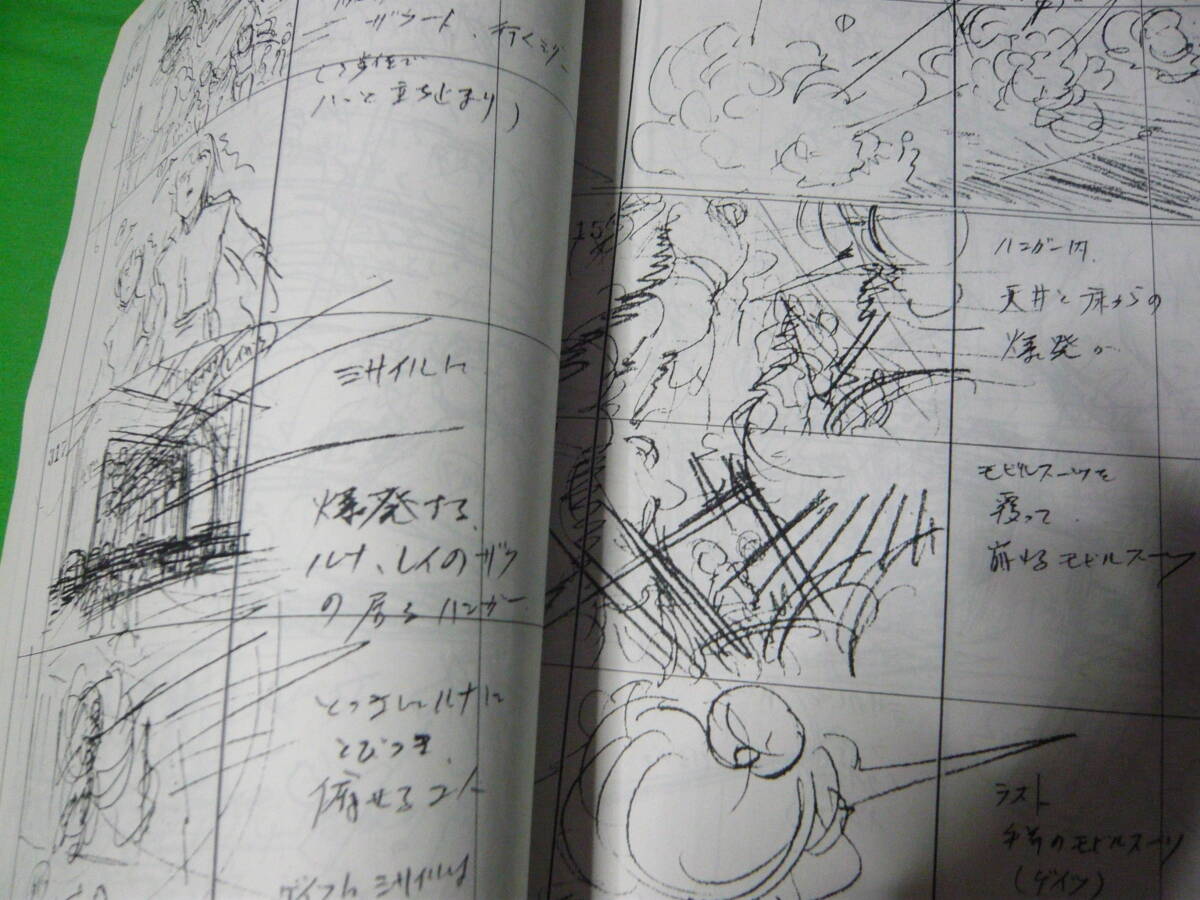 ザウート、行くミゲ
ハッと立ち止まり）
ミサイルに
317
爆発する、
ルナ、レイのザク
の居るハンガー
とっさにルナに
とびつき、
伏せる2人
ゲイツん ミサイルは
①
15
ハンガー内、
天井と床からの
爆発が
モビルスーツを
覆って
崩れるモビルスーツ
ラスト
手前のモビルスーツ
（ゲイツ）